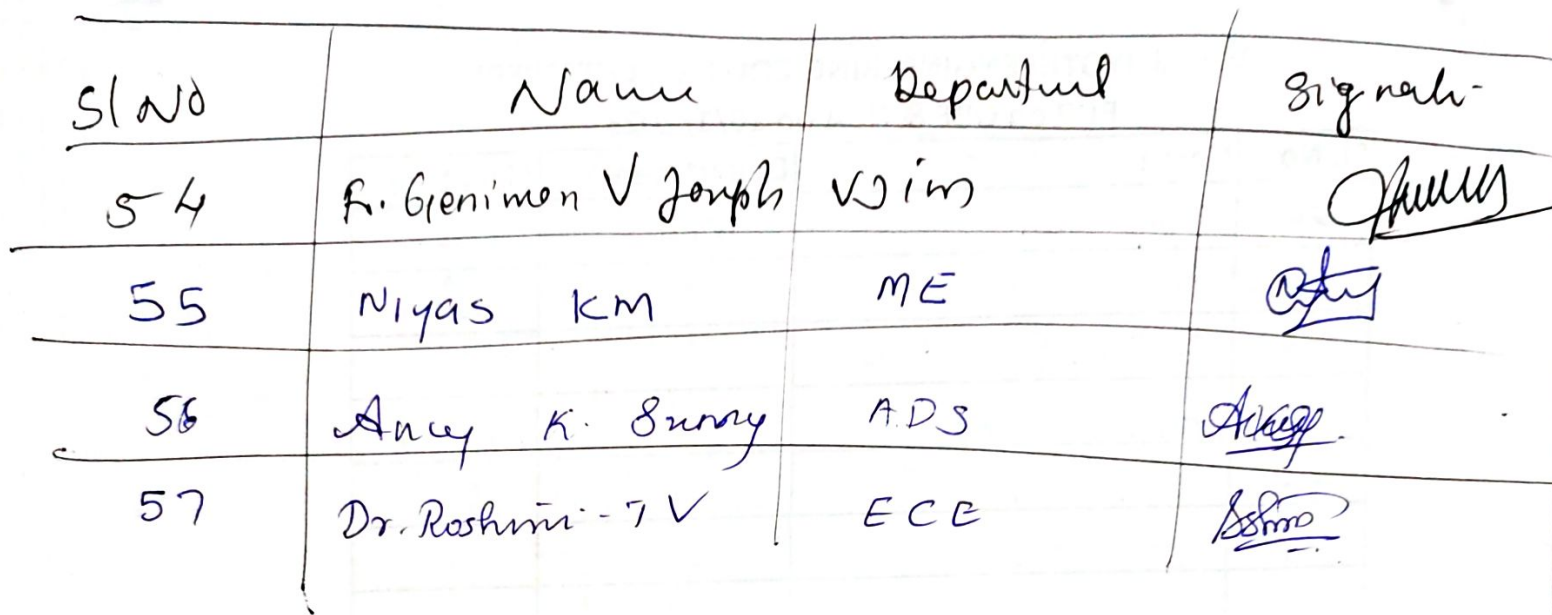 Sl No Name Department Signature
54 Fr. Genimon V Joseph VJim
55 Niyas KM ME
56 Ancy K. Sunny A.D.S
57 Dr. Roshini - T V ECE